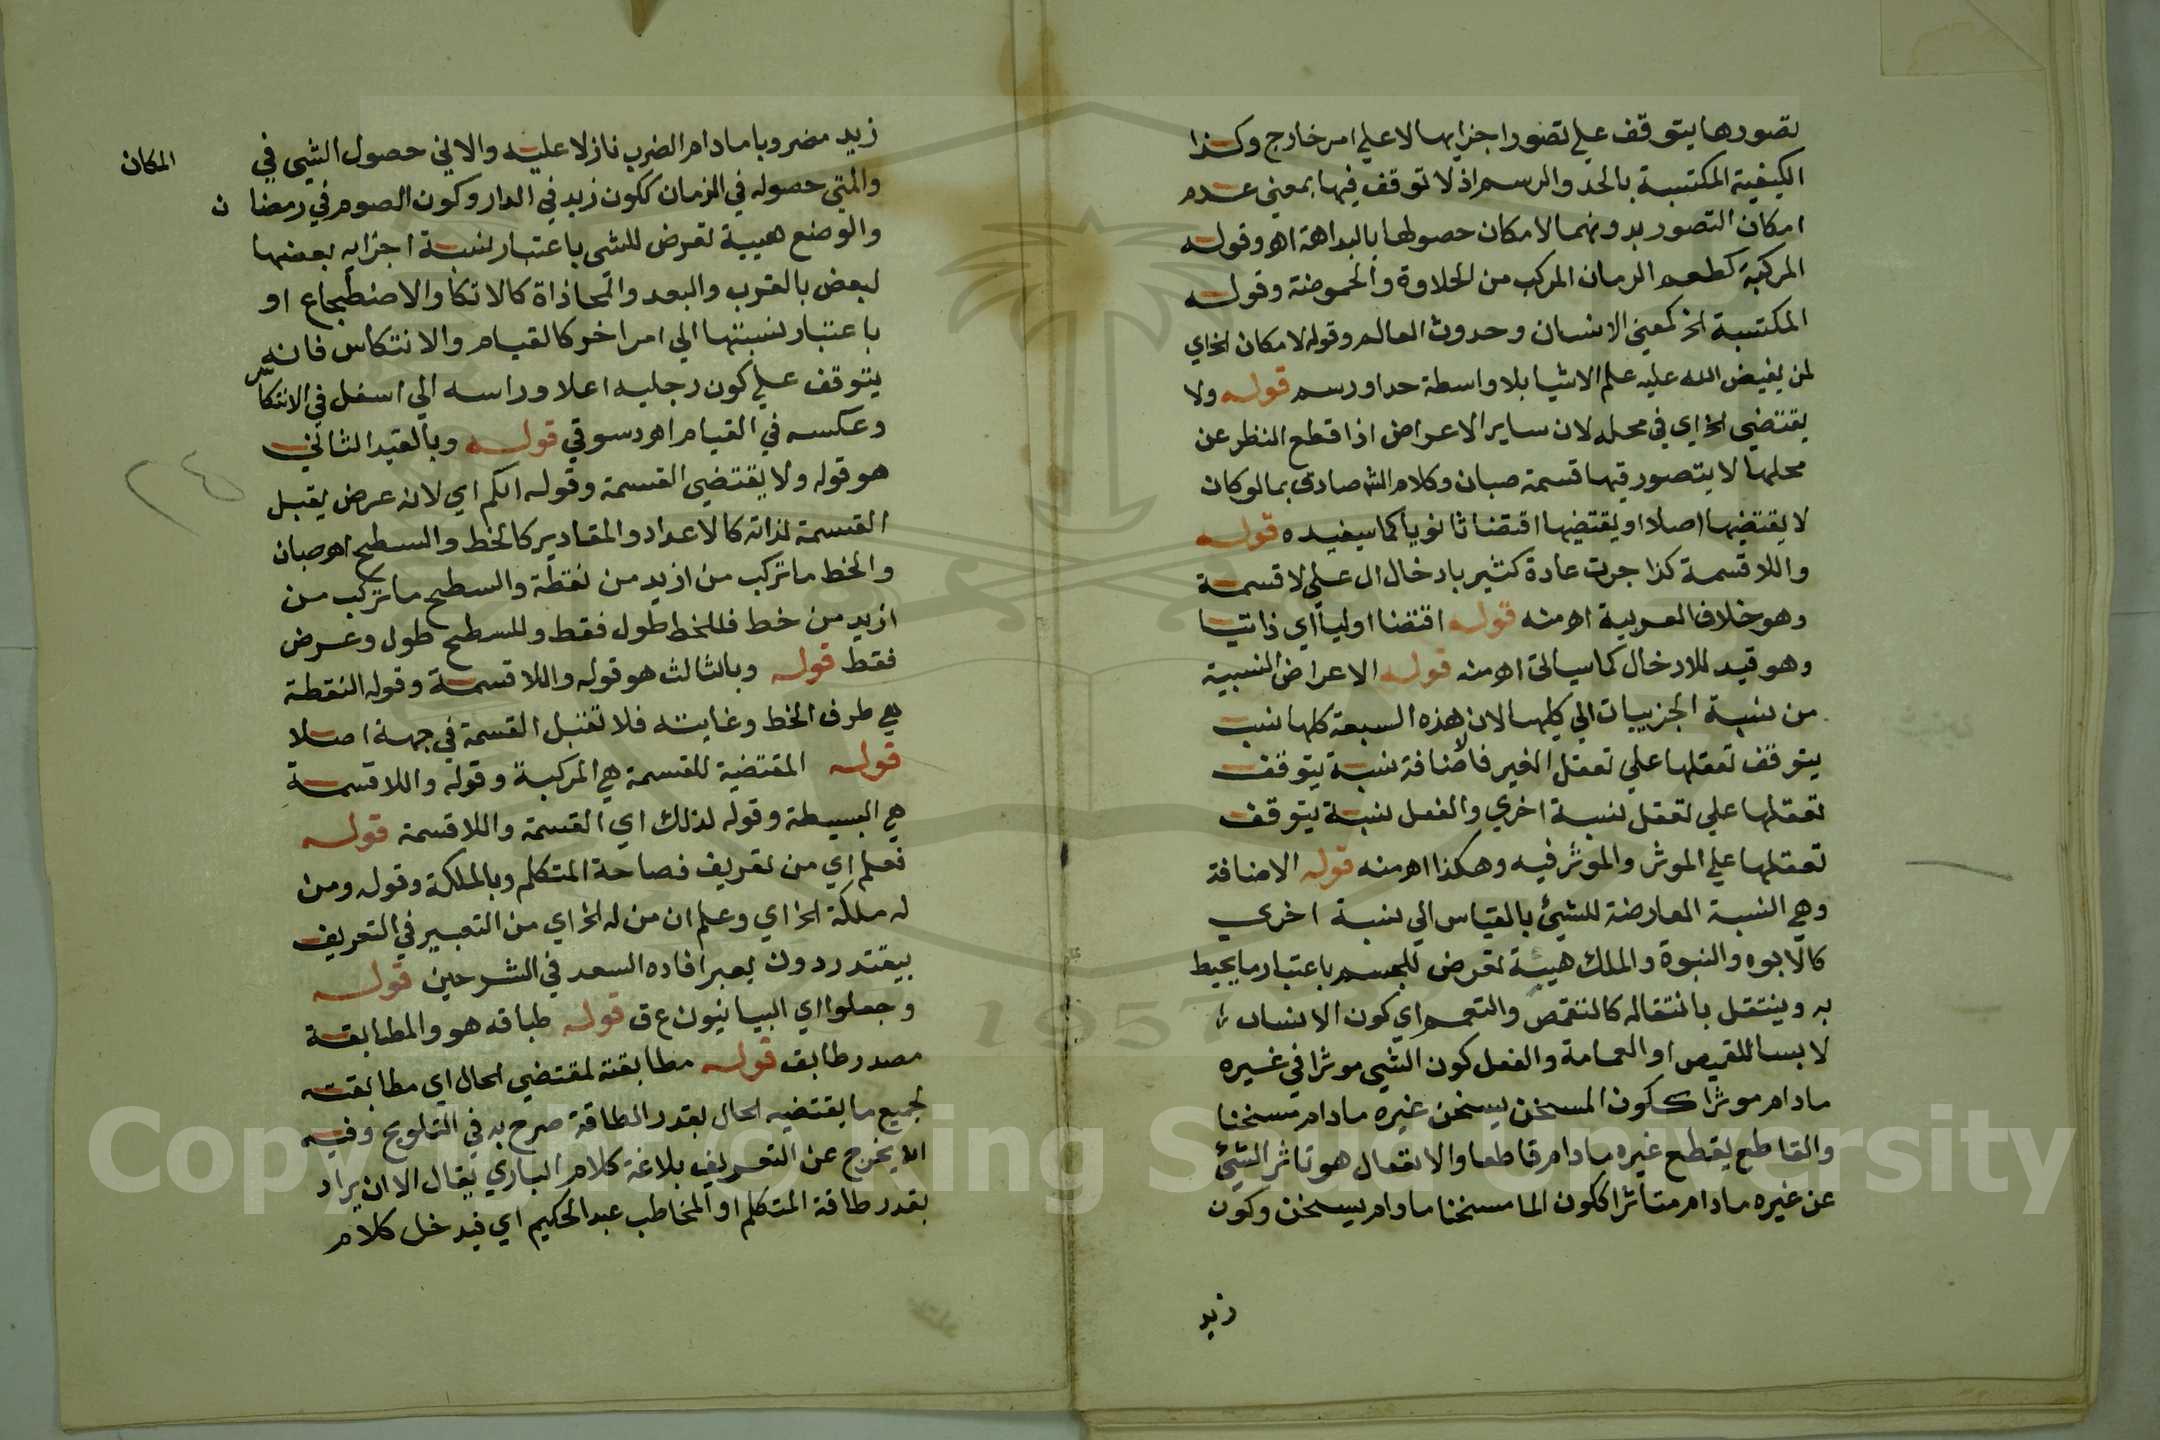 تصورها يتوقف علي تصور اجزايها لا علي امر خارج وكذا
الكيفية المكتسبة بالحد والرسم اذ لا توقف فيها بمعني عدم
امكان التصور بدونهما لامكان حصولها بالبداهة اه وقوله
المركبة كطعم الرمان المركب من الحلاوة والحموضة وقوله
المكتسبة الخ كمعني الانسان وحدوث العالم وقوله لامكان الخ اي
لمن يفيض الله عليه علم الاشيا بلا واسطة حد او رسم قوله ولا
يقتضي الخ اي في محله لان ساير الاعراض اذا قطع النظر عن
محلها لا يتصور فيها قسمة صبان وكلام الشه صادق بما لو كان
لا يقتضيها اصلا او يقتضيها اقتضا ثانويا كما سيفيده قوله
واللاقسمة كذا جرت عادة كثير بادخال ال علي لا قسمة
وهو خلاف العربية اه منه قوله اقتضا اوليا اي ذاتيا
وهو قيد للادخال كما سياتي اه منه قوله الاعراض النسبية
من نسبة الجزييات الي كليها لان هذه السبعة كلها نسب
يتوقف تعقلها علي تعقل الغير فالاضافة نسبة يتوقف
تعقلها علي تعقل نسبة اخري والفعل نسبة يتوقف
تعقلها علي الموثر والموثر فيه وهكذا اه منه قوله الاضافة
وهي النسبة العارضة للشيئ بالقياس الي نسبة اخري
كالابوه والنبوة والملك هيئة تعرض للجسم باعتبار ما يحيط
به وينتقل بانتقاله كالتقمص والتعمم اي كون الانسان
لابسا للقميص او العمامة والفعل كون الشي موثرا في غيره
مادام موثرا ككون المسخن يسخن غيره مادام مسخنا
والقاطع يقطع غيره مادام قاطعا والانفعال هو تاثر الشيئ
عن غيره مادام متاثرا ككون الما مسخنا مادام يسخن وكون
زيد
زيد مضروبا مادام الضرب نازلا عليه والايني حصول الشي في
المكان
والمتي حصوله في الزمان ككون زيد في الدار وكون الصوم في رمضان
والوضع هيية تعرض للشي باعتبار نسبة اجزايه بعضها
لبعض بالقرب والبعد والمحاذاة كالاتكا والاضطجاع او
باعتبار نسبتها الي امر اخر كالقيام والانتكاس فانه
يتوقف علي كون رجليه اعلا وراسه الي اسفل في الانتكاس
وعكسه في القيام اه دسوقي قوله وبالقيد الثاني
هو قوله ولا يقتضي القسمة وقوله الكم اي لانه عرض يقبل
القسمة لذاته كالاعداد والمقادير كالخط والسطح اه صبان
والخط ما تركب من ازيد من نقطة والسطح ما تركب من
ازيد من خط فللخط طول فقط وللسطح طول وعرض
فقط قوله وبالثالث هو قوله واللاقسمة وقوله النقطة
هي طرف الخط وغايته فلا تقبل القسمة في جهة اصلا
قوله المقتضية للقسمة هي المركبة وقوله واللاقسمة
هي البسيطة وقوله لذلك اي القسمة واللاقسمة قوله
فعلم اي من تعريف فصاحة المتكلم وبالملكة وقوله ومن
له ملكة الخ اي وعلم ان من له الخ اي من التعبير في التعريف
بيقتدر دون يعبر افاده السعد في الشرحين قوله
وجعلوا اي البيانيون ع ق قوله طباقه هو والمطابقة
مصدر طابق قوله مطابقته لمقتضي الحال اي مطابقته
لجميع ما يقتضيه الحال بقدر الطاقة صرح به في التلويح وفيه
انه يخرج عن التعريف بلاغة كلام الباري يقال الا ان يراد
بقدر طاقة المتكلم او المخاطب عبد الحكيم اي فيدخل كلام
٢٤
1957
Copyright © King Saud University